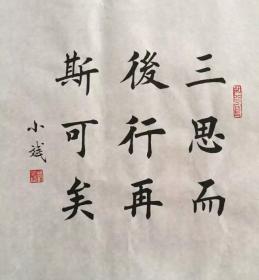 三思而
後行再
斯可矣
小斌